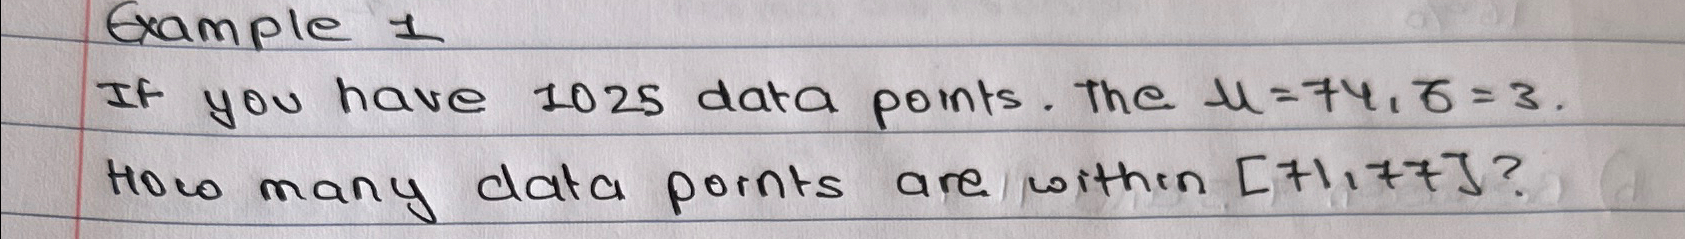 Example 1
If you have 1025 data points. The μ=74, σ=3.
How many data points are within [71,77]?